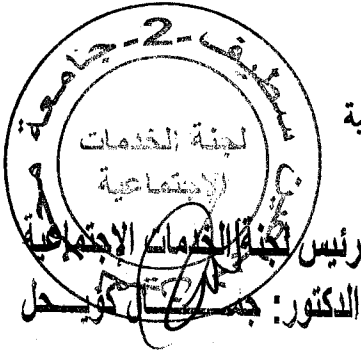 جامعة
سطيف -2-
لجنة الخدمات
الإجتماعية
ية
رئيس لجنة الخدمات الإجتماعية
الدكتور: جمـــــال كويـــحل